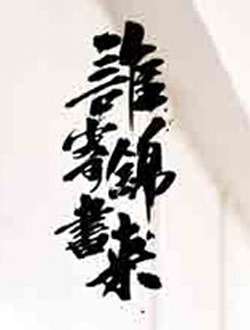 誰寄錦書來